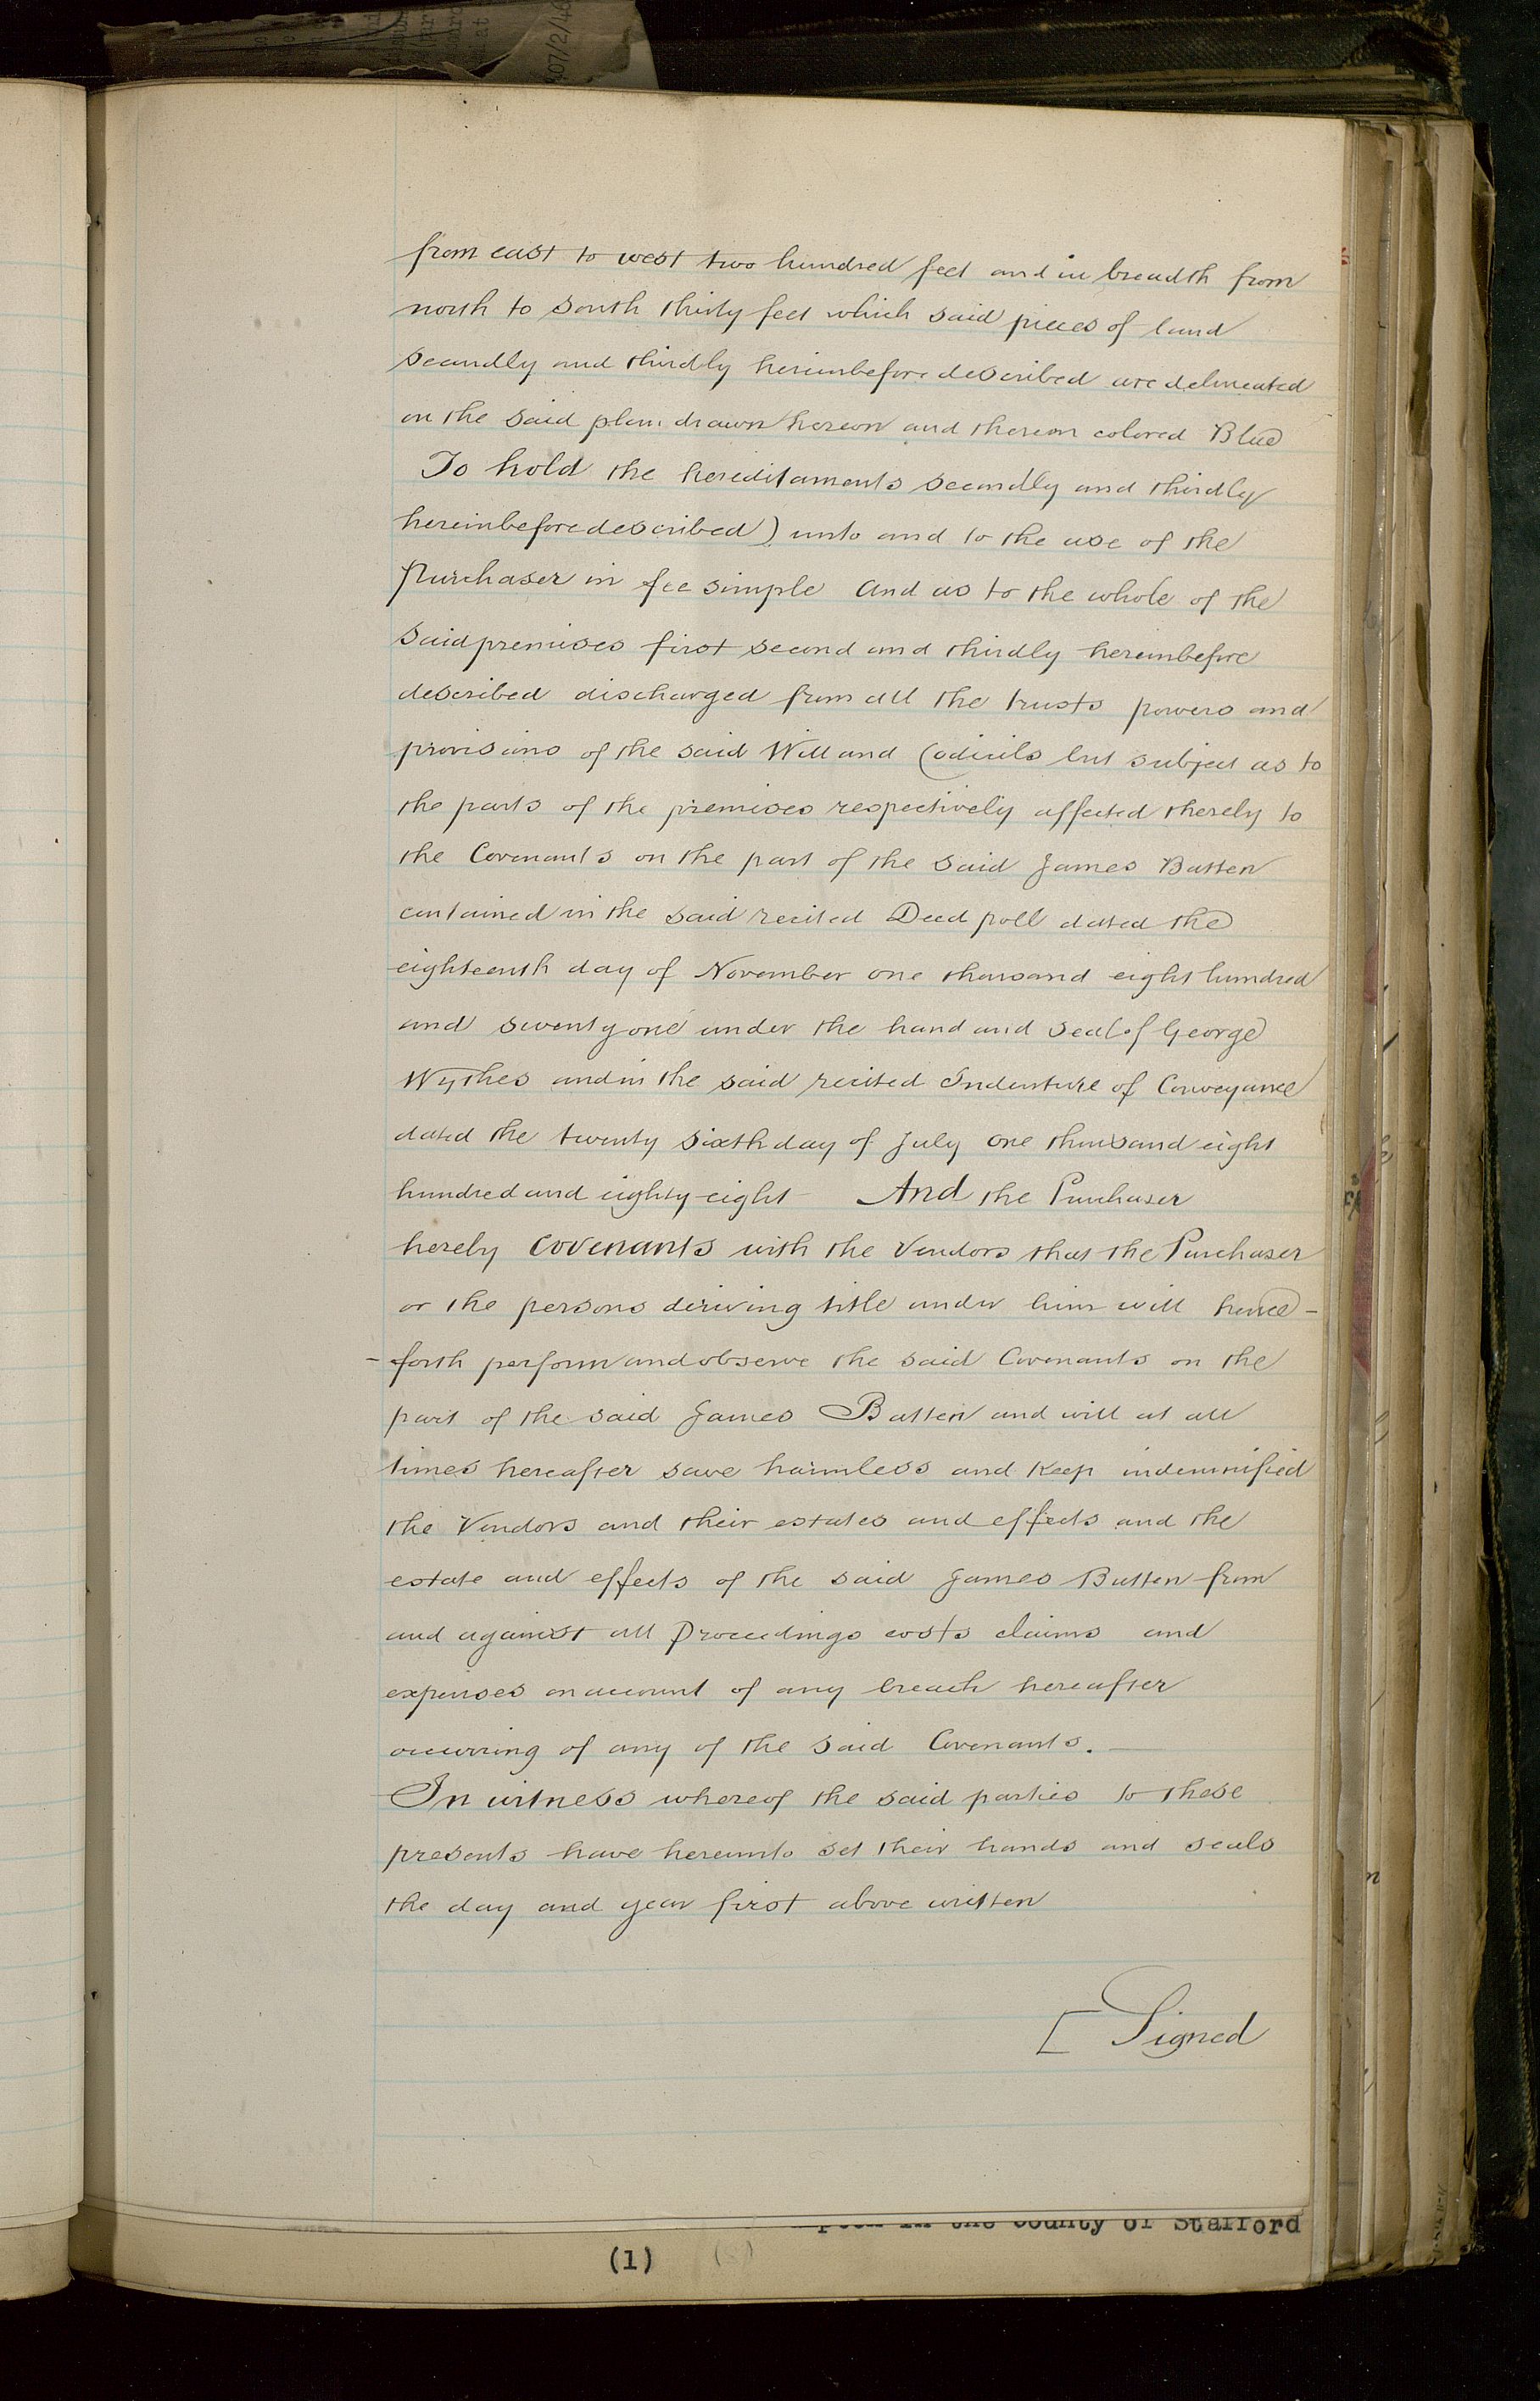 from east to west two hundred feet and in breadth from
north to south thirty feet which said pieces of land
secondly and thirdly hereinbefore described are delineated
on the said plan drawn hereon and thereon colored Blue
To hold the hereditaments secondly and thirdly
hereinbefore described) unto and to the use of the
Purchaser in fee simple And as to the whole of the
said premises first second and thirdly hereinbefore
described discharged from all the trusts powers and
provisions of the said Will and Codicils but subject as to
the parts of the premises respectively affected thereby to
the Covenants on the part of the said James Batten
contained in the said recited Deed poll dated the
eighteenth day of November one thousand eight hundred
and seventy one under the hand and seal of George
Wythes and in the said recited Indenture of Conveyance
dated the twenty sixth day of July one thousand eight
hundred and eighty eight And the Purchaser
hereby Covenants with the Vendors that the Purchaser
or the persons deriving title under him will hence-
-forth perform and observe the said Covenants on the
part of the said James Batten and will at all
times hereafter save harmless and keep indemnified
the Vendors and their estates and effects and the
estate and effects of the said James Batten from
and against all proceedings costs claims and
expenses on account of any breach hereafter
occurring of any of the said Covenants.
In witness whereof the said parties to these
presents have hereunto set their hands and seals
the day and year first above written
[Signed
in the County of Stafford
(1)